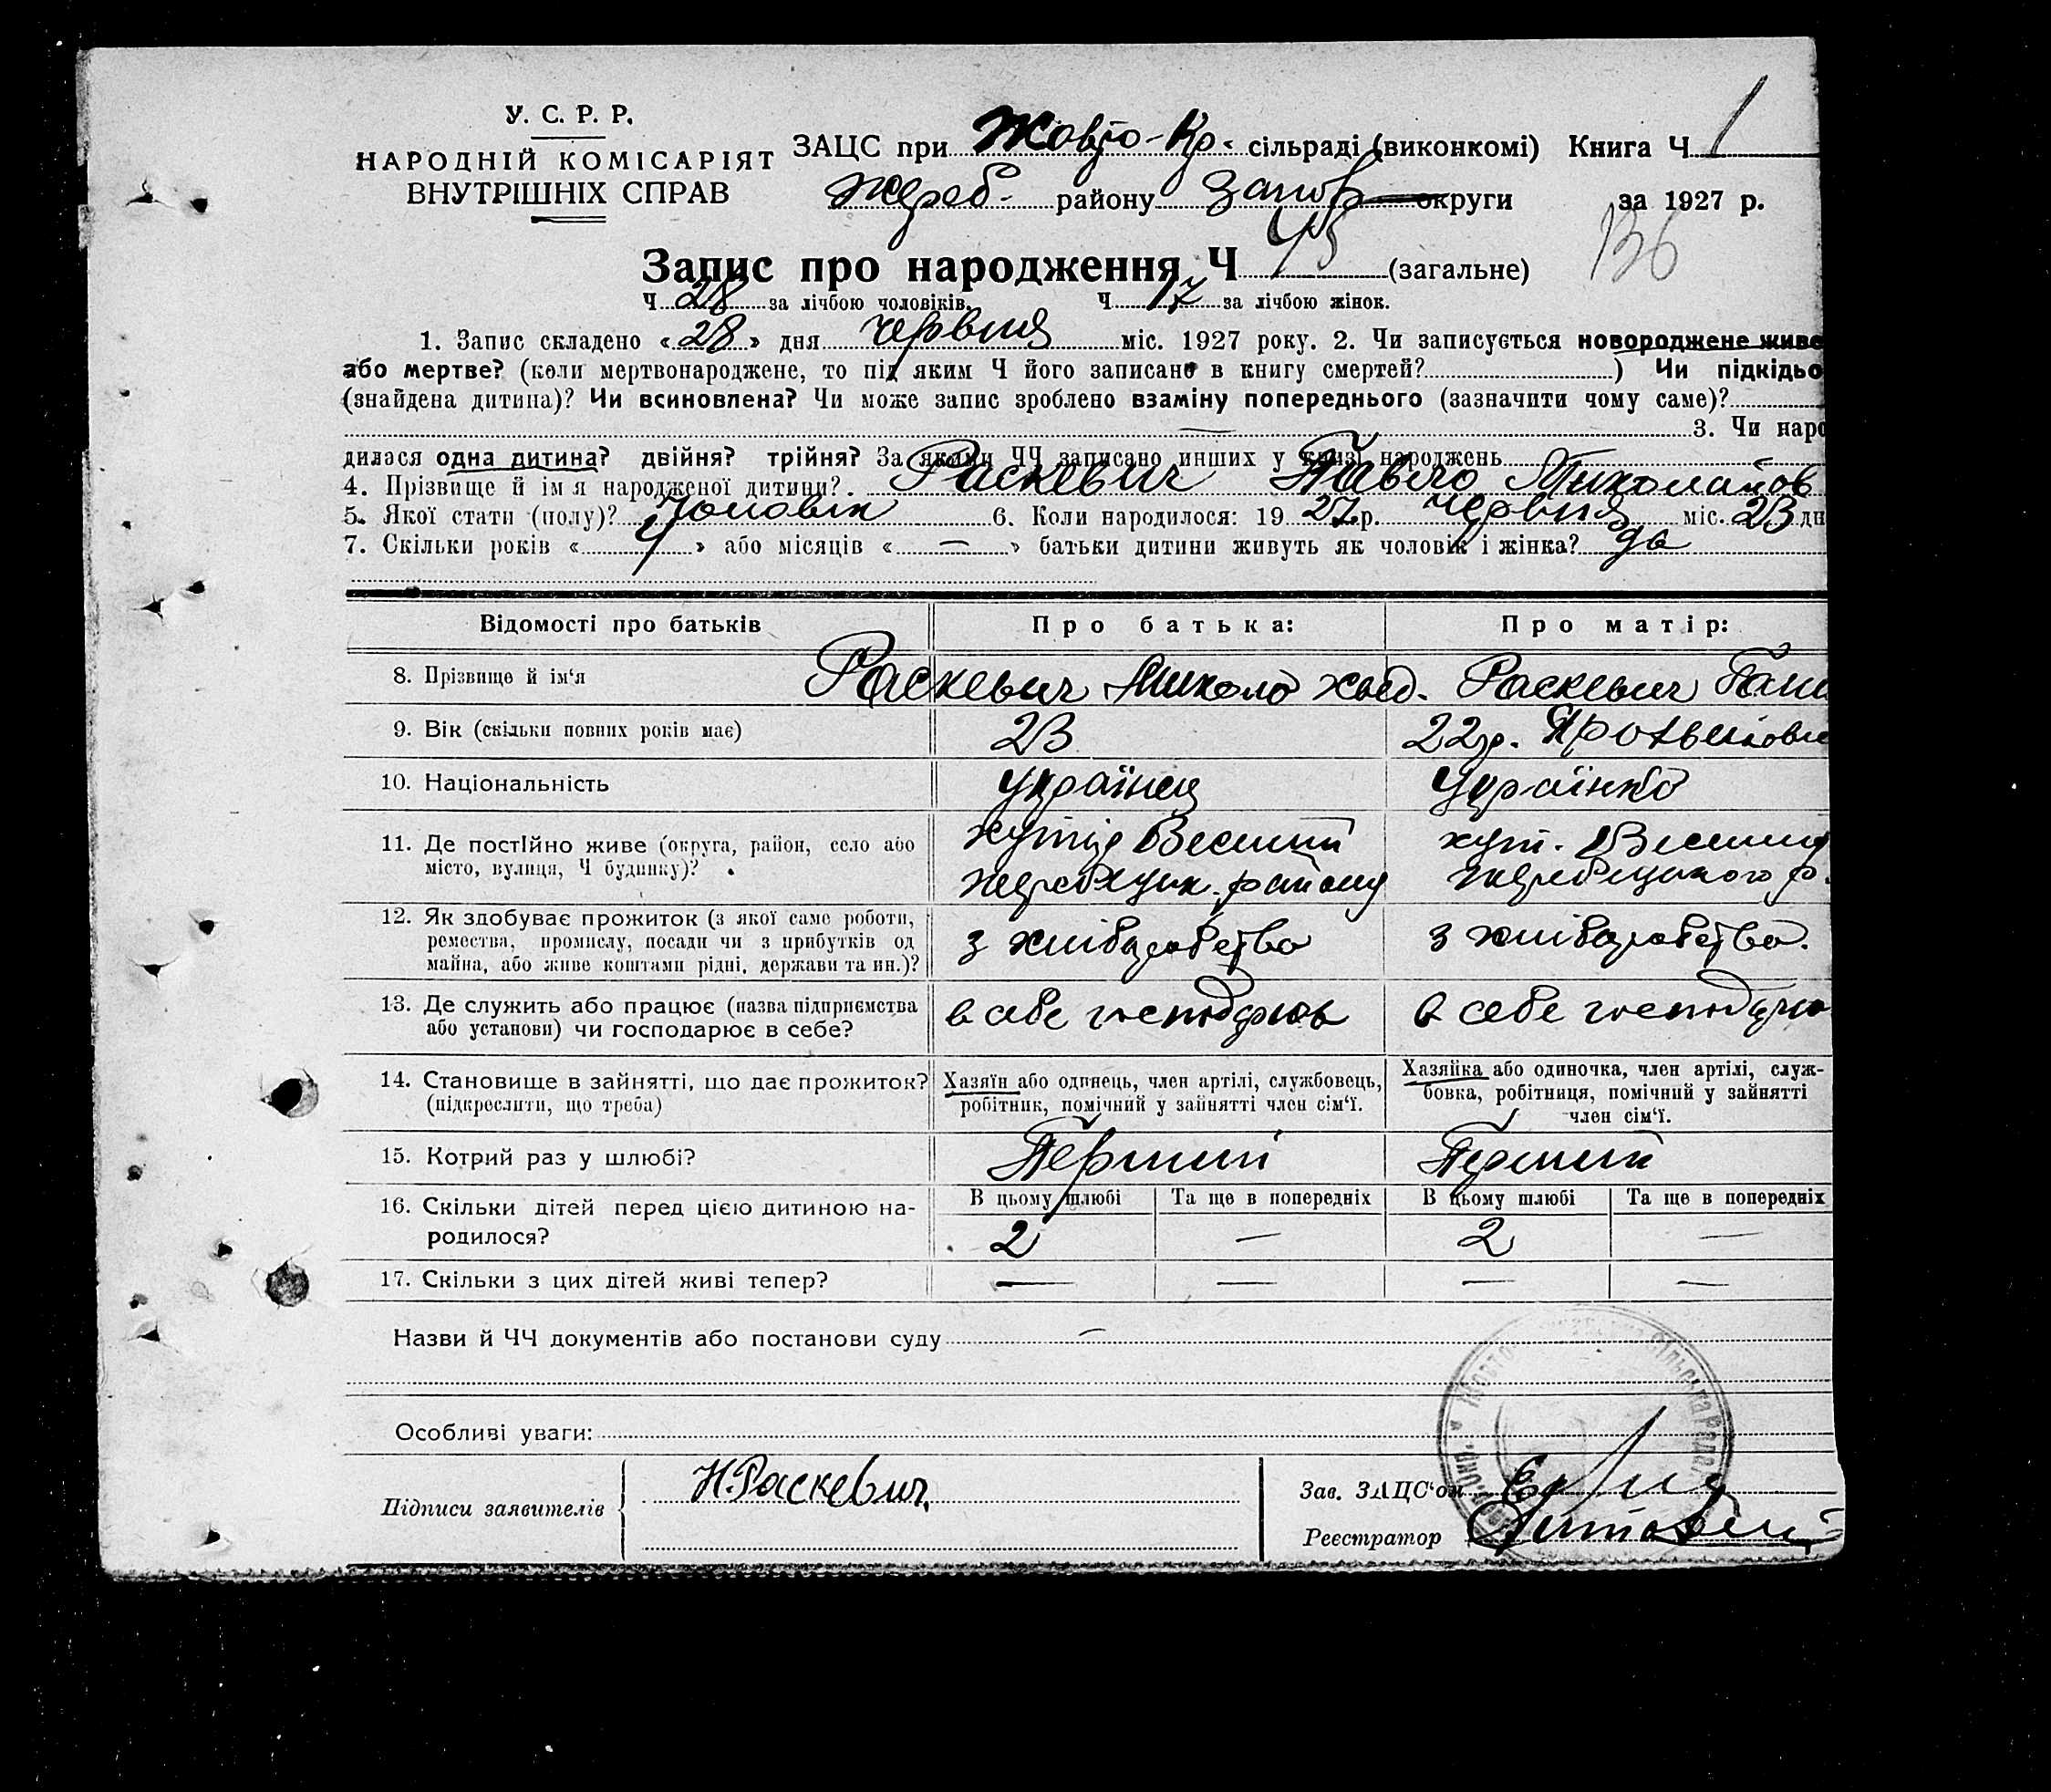 У. С. Р. Р.
НАРОДНІЙ КОМІСАРІЯТ
ВНУТРІШНІХ СПРАВ
ЗАЦС при Жовто-Кр. сільраді (виконкомі) Книга Ч 1
Жереб. району Запор округи за 1927 р.
136
Запис про народження Ч 45 (загальне)
Ч 28 за лічбою чоловіків, Ч 17 за лічбою жінок.
1. Запис складено «28» дня червня міс. 1927 року. 2. Чи записується новороджене живе
або мертве? (коли мертвонароджене, то під яким Ч його записано в книгу смертей? ) Чи підкідьо
(знайдена дитина)? Чи всиновлена? Чи може запис зроблено взаміну попереднього (зазначити чому саме)?
— 3. Чи наро
дилася одна дитина? двійня? трійня? За якими ЧЧ записано инших у книзі народжень
4. Прізвище й імя народженої дитини? Раскевич Павло Миколайов
5. Якої стати (полу)? Чоловік 6. Коли народилося: 19 27 р. червня міс. 23 дн
7. Скільки років « 4 » або місяців « — » батьки дитини живуть як чоловік і жінка? да
Відомості про батьків Про батька: Про матір:
8. Прізвище й ім‘я Раскевич Микола Раскевич
9. Вік (скільки повних років має) 23 22 р.
10. Національність Українец Українка
11. Де постійно живе (округа, район, село або хутір Веселий хут. Веселий
місто, вулиця, Ч будинку)? Жеребецьк. району Жеребецького р.
12. Як здобуває прожиток (з якої саме роботи,
ремества, промислу, посади чи з прибутків од з хліборобства з хліборобства.
майна, або живе коштами рідні, держави та ин.)?
13. Де служить або працює (назва підприємства в себе господарює в себе господарю
або установи) чи господарює в себе?
14. Становище в зайнятті, що дає прожиток? Хазяїн або одинець, член артілі, службовець, Хазяйка або одиночка, член артілі, служ-
(підкреслити, що треба) робітник, помічний у зайнятті член сім‘ї. бовка, робітниця, помічний у зайнятті
член сім‘ї.
15. Котрий раз у шлюбі? Перший Перший
В цьому шлюбі Та ще в попередніх В цьому шлюбі Та ще в попередніх
16. Скільки дітей перед цією дитиною на-
родилося? 2 — 2 —
17. Скільки з цих дітей живі тепер? — — — —
Назви й ЧЧ документів або постанови суду —
Особливі уваги:
Підписи заявителів Н. Раскевич.
Зав. ЗАЦС‘ом
Реєстратор